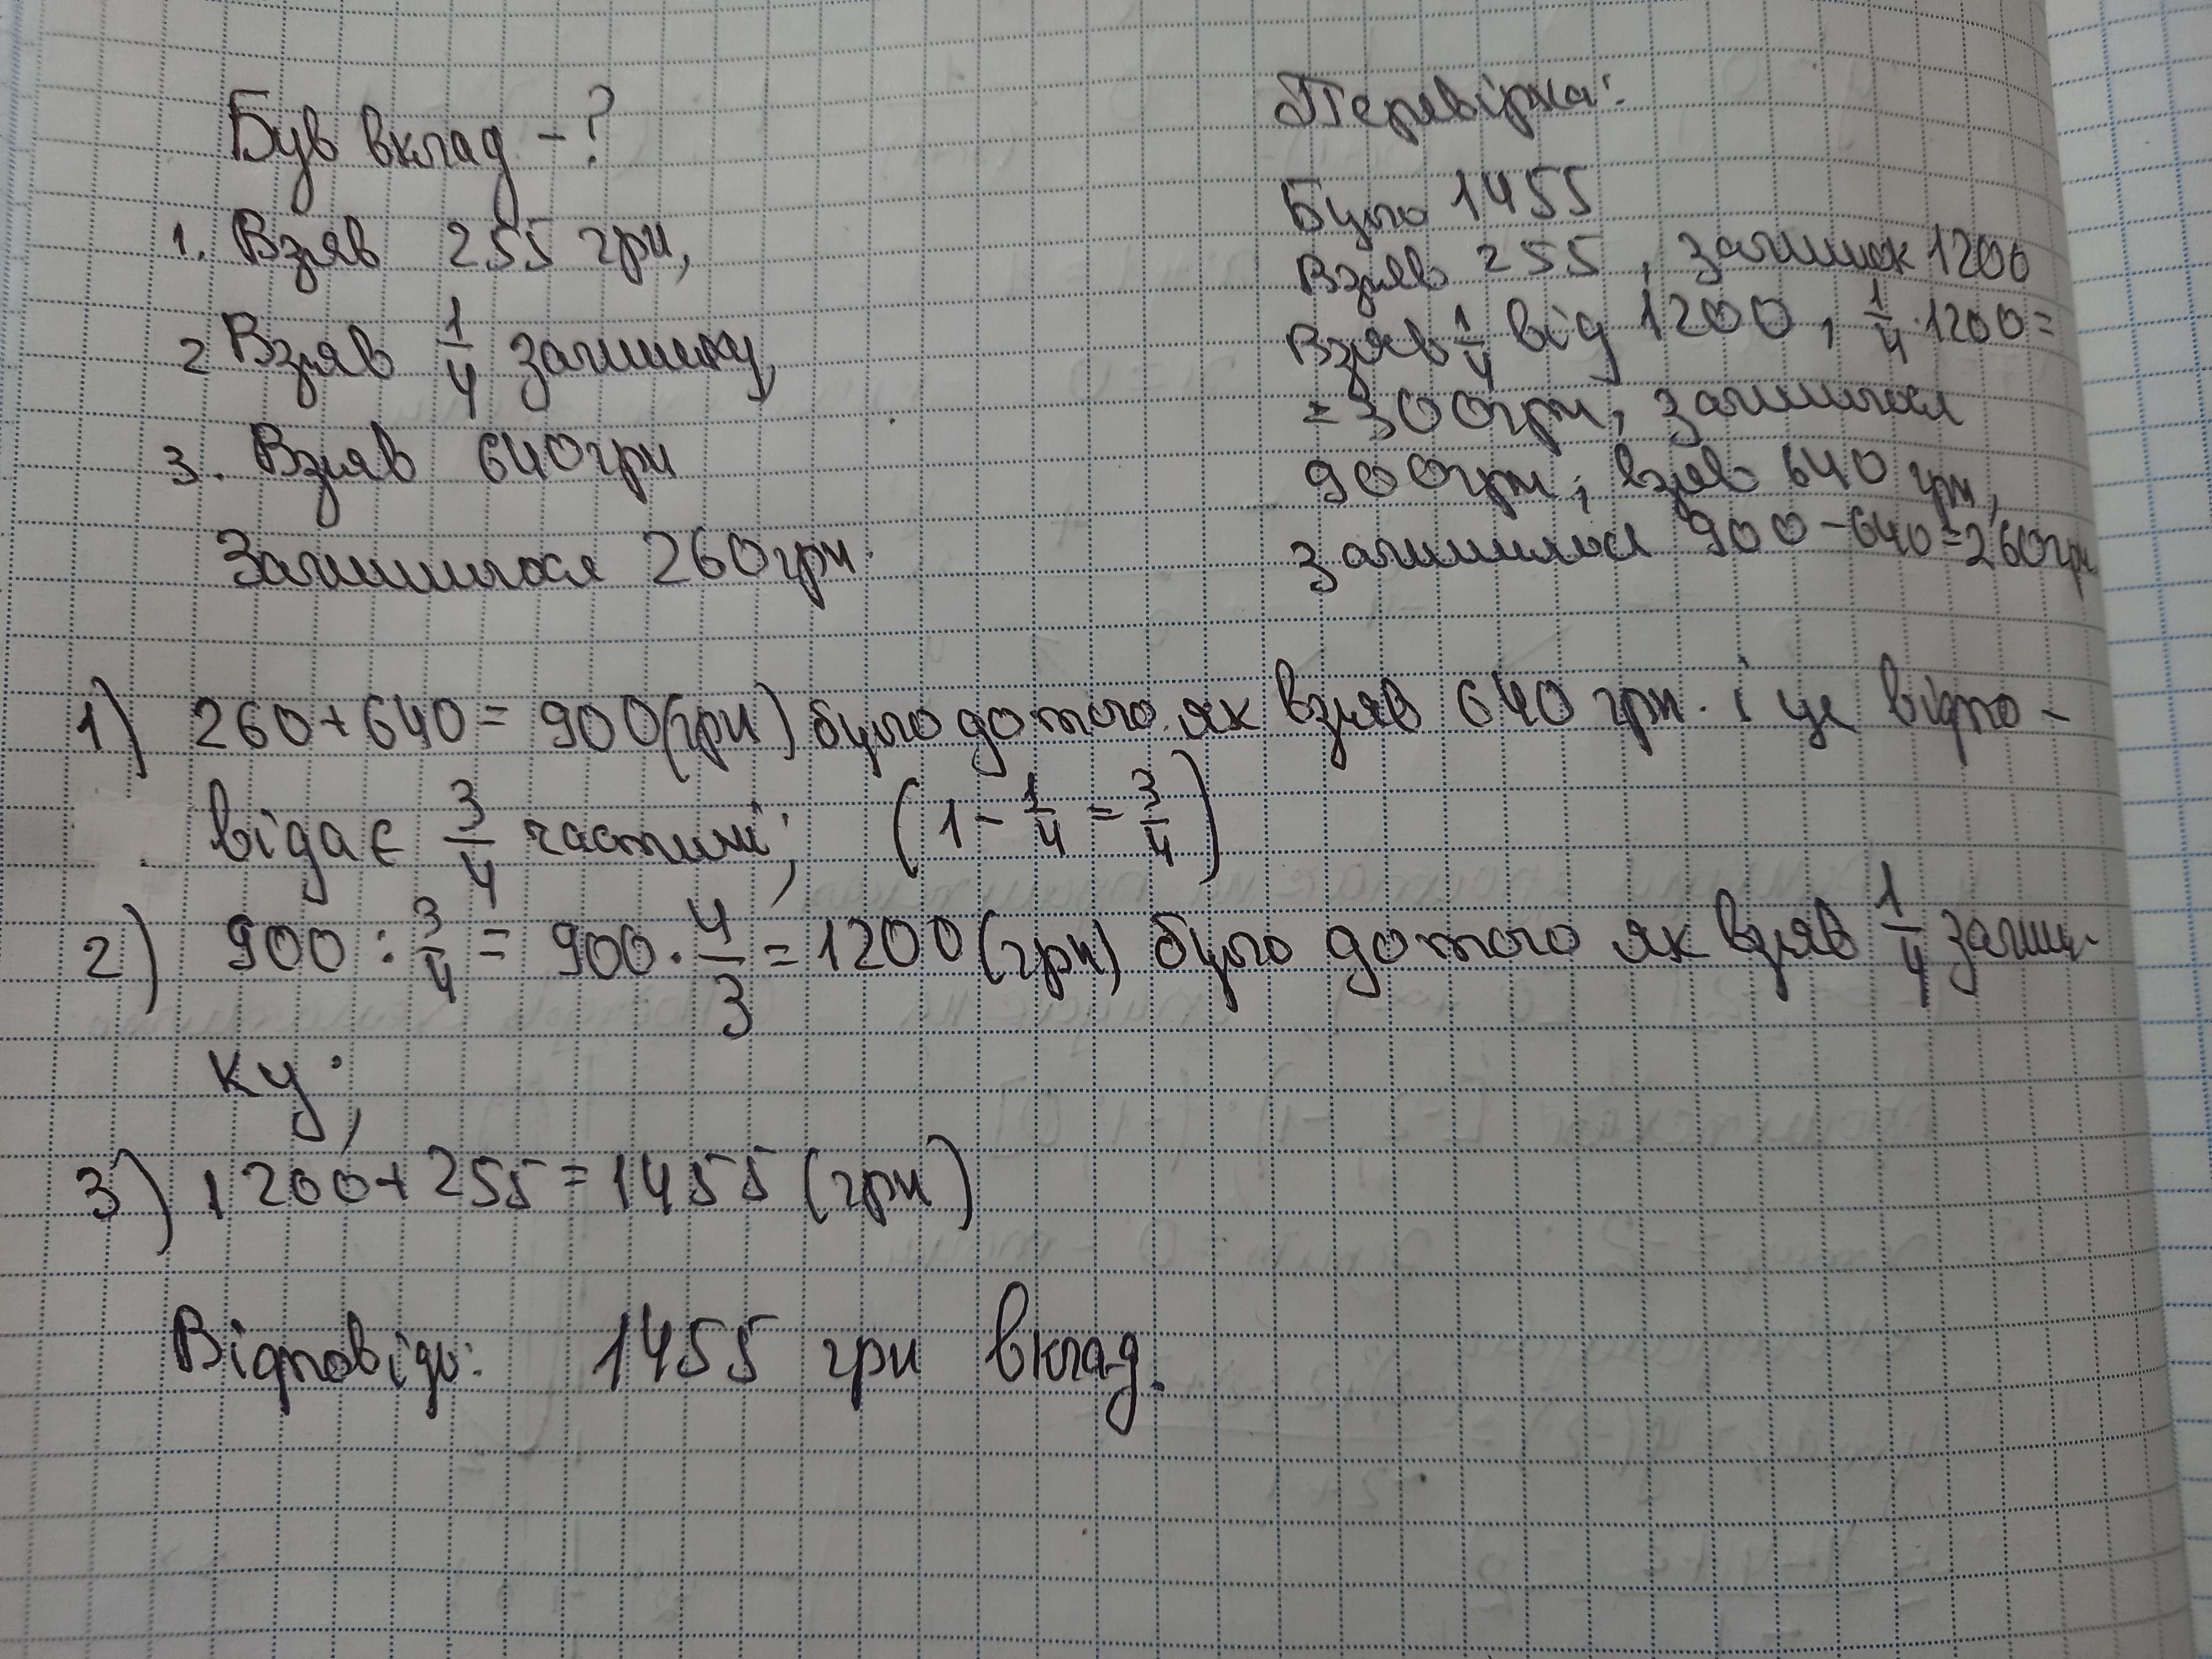 Був вклад - ?
1. Взяв 255 грн,
2 Взяв 1/4 залишку,
3. Взяв 640грн
Залишилося 260грн.
Перевірка:
Було 1455
Взяв 255, залишок 1200
Взяв 1/4 від 1200, 1/4 · 1200 =
= 300грн, залишилося
900грн; взяв 640 грн,
залишилося 900 - 640 = 260грн
1) 260 + 640 = 900(грн) було до того як взяв 640 грн. і це відпо-
відає 3/4 частині; (1 - 1/4 = 3/4)
2) 900 : 3/4 = 900 · 4/3 = 1200 (грн) було до того як взяв 1/4 залиш-
ку;
3) 1200 + 255 = 1455 (грн)
Відповідь: 1455 грн вклад.